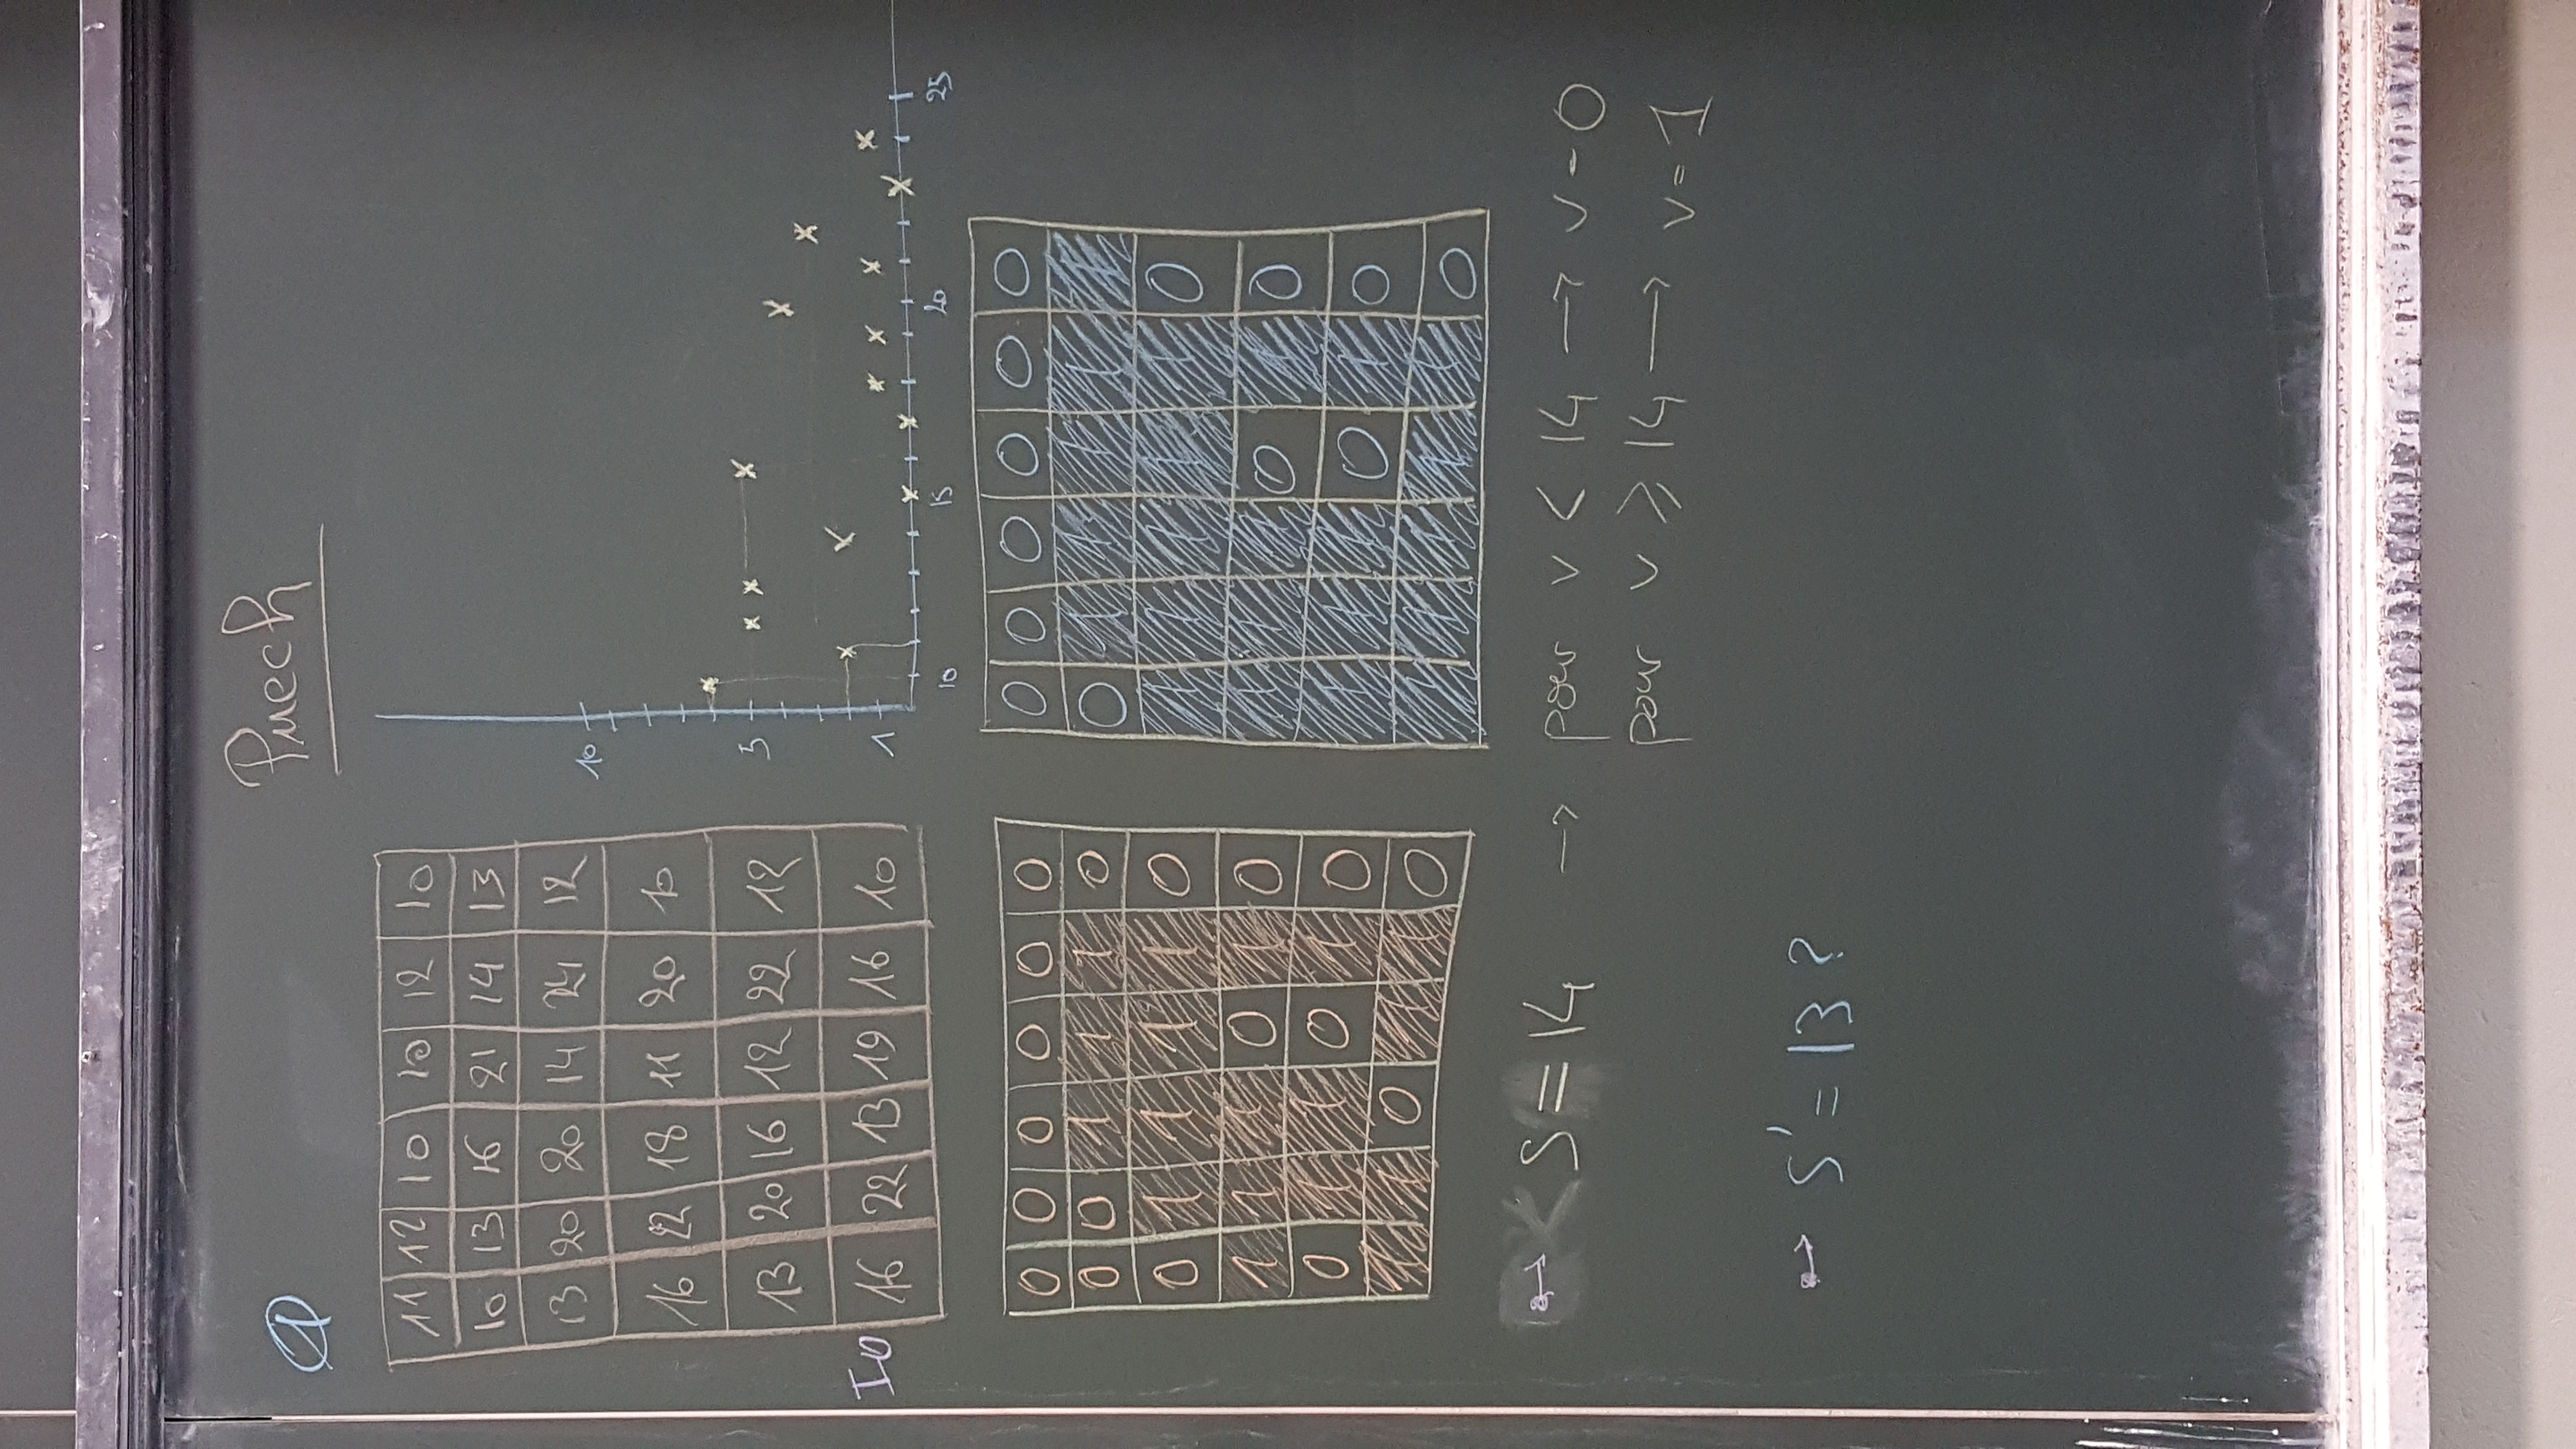 Puech
1
11 12 10 10 12 10
10 13 16 21 14 13
13 20 20 14 24 12
16 22 18 11 20 10
13 20 16 12 22 12
I0 16 22 13 19 16 10
10
5
1
10 15 20 25
0 0 0 0 0 0
0 0 1 1 1 0
0 1 1 1 1 0
1 1 1 0 1 0
0 1 1 0 1 0
1 1 0 1 1 0
0 0 0 0 0 0
0 1 1 1 1 1
1 1 1 1 1 0
1 1 1 0 1 0
1 1 1 0 1 0
1 1 1 1 1 0
S = 14 → pour v < 14 → v = 0
pour v ⩾ 14 → v = 1
S' = 13 ?